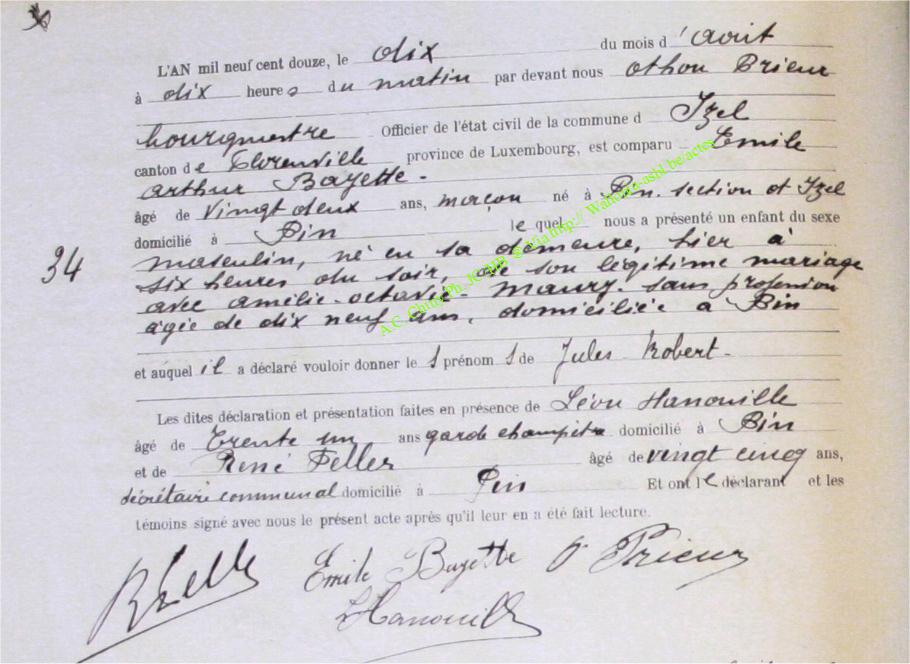 L'AN mil neuf cent douze, le dix du mois d'Août
à dix heures du matin par devant nous Othon Prieur
bourgmestre Officier de l'état civil de la commune d Izel
canton de Florenville province de Luxembourg, est comparu Emile
Arthur Bazette -
âgé de vingt deux ans, maçon né à Pin. section d Izel
domicilié à Pin le quel nous a présenté un enfant du sexe
masculin, né en sa demeure, hier à
34
six heures du soir, de son légitime mariage
avec Amélie-Octavie- Maury. sans profession
âgée de dix neuf ans, domiciliée à Pin
et auquel il a déclaré vouloir donner le prénom de Jules Robert -
Les dites déclaration et présentation faites en présence de Léon Hanouille
âgé de trente un ans garde champêtre domicilié à Pin
et de René Pelles âgé de vingt cinq ans,
secrétaire communal domicilié à Pin Et ont le déclarant et les
témoins signé avec nous le présent acte après qu'il leur en a été fait lecture.
Emile Bazette O Prieur
LHanouille